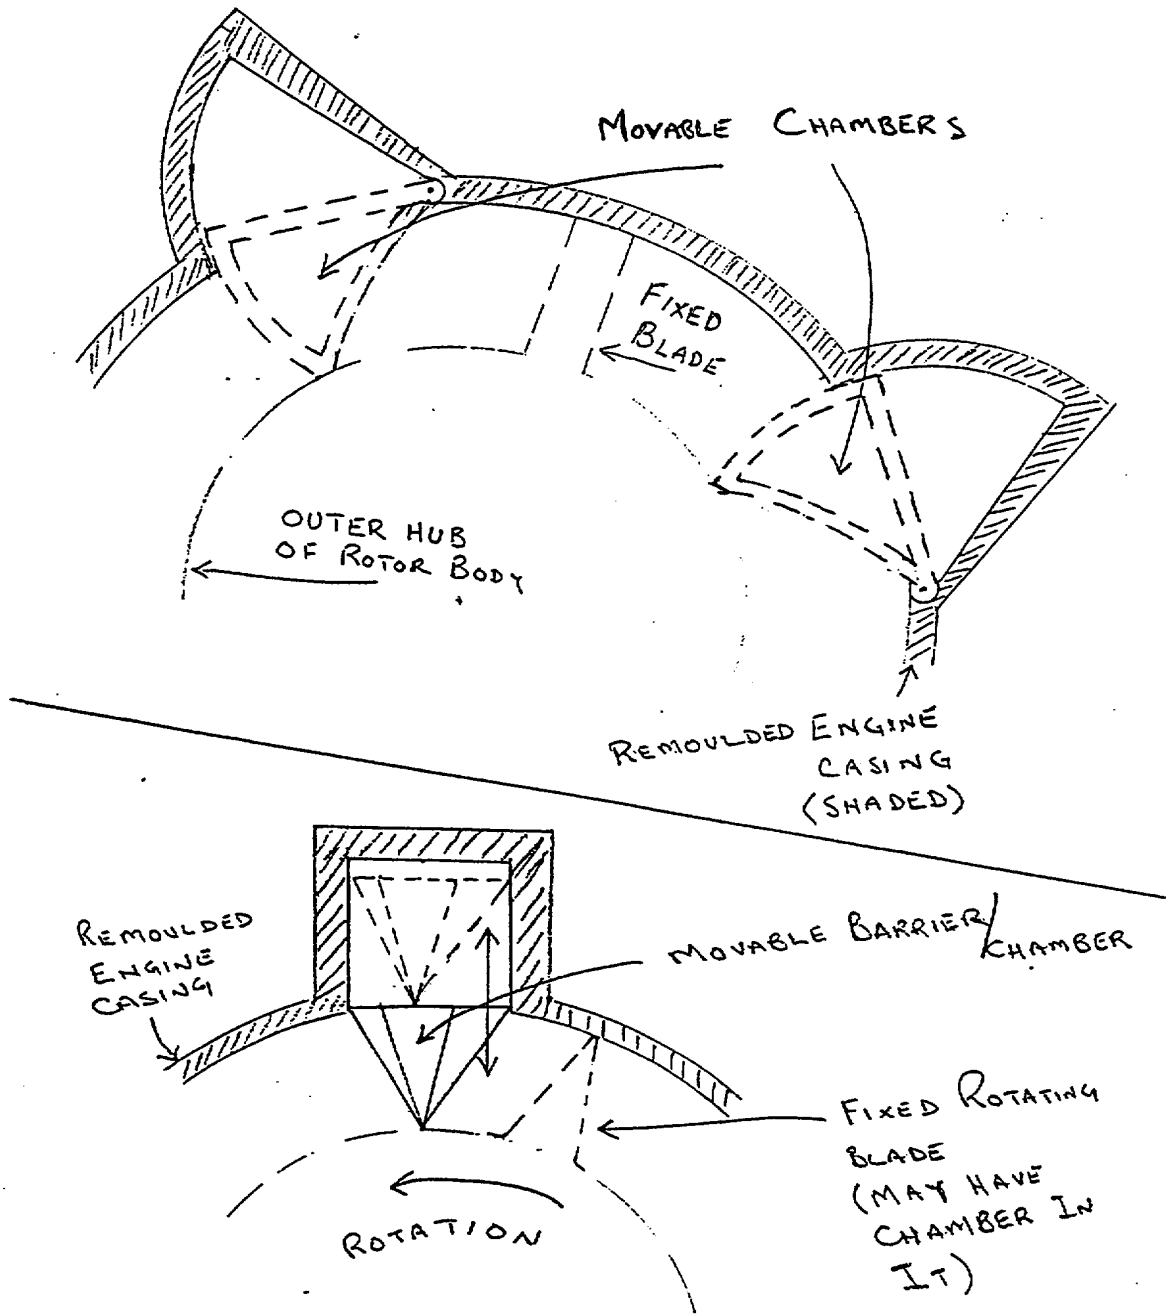 MOVABLE CHAMBERS
FIXED
BLADE
OUTER HUB
OF ROTOR BODY
REMOULDED ENGINE
CASING
(SHADED)
REMOULDED
ENGINE
CASING
MOVABLE BARRIER/
CHAMBER
FIXED ROTATING
BLADE
(MAY HAVE
CHAMBER IN
IT)
ROTATION